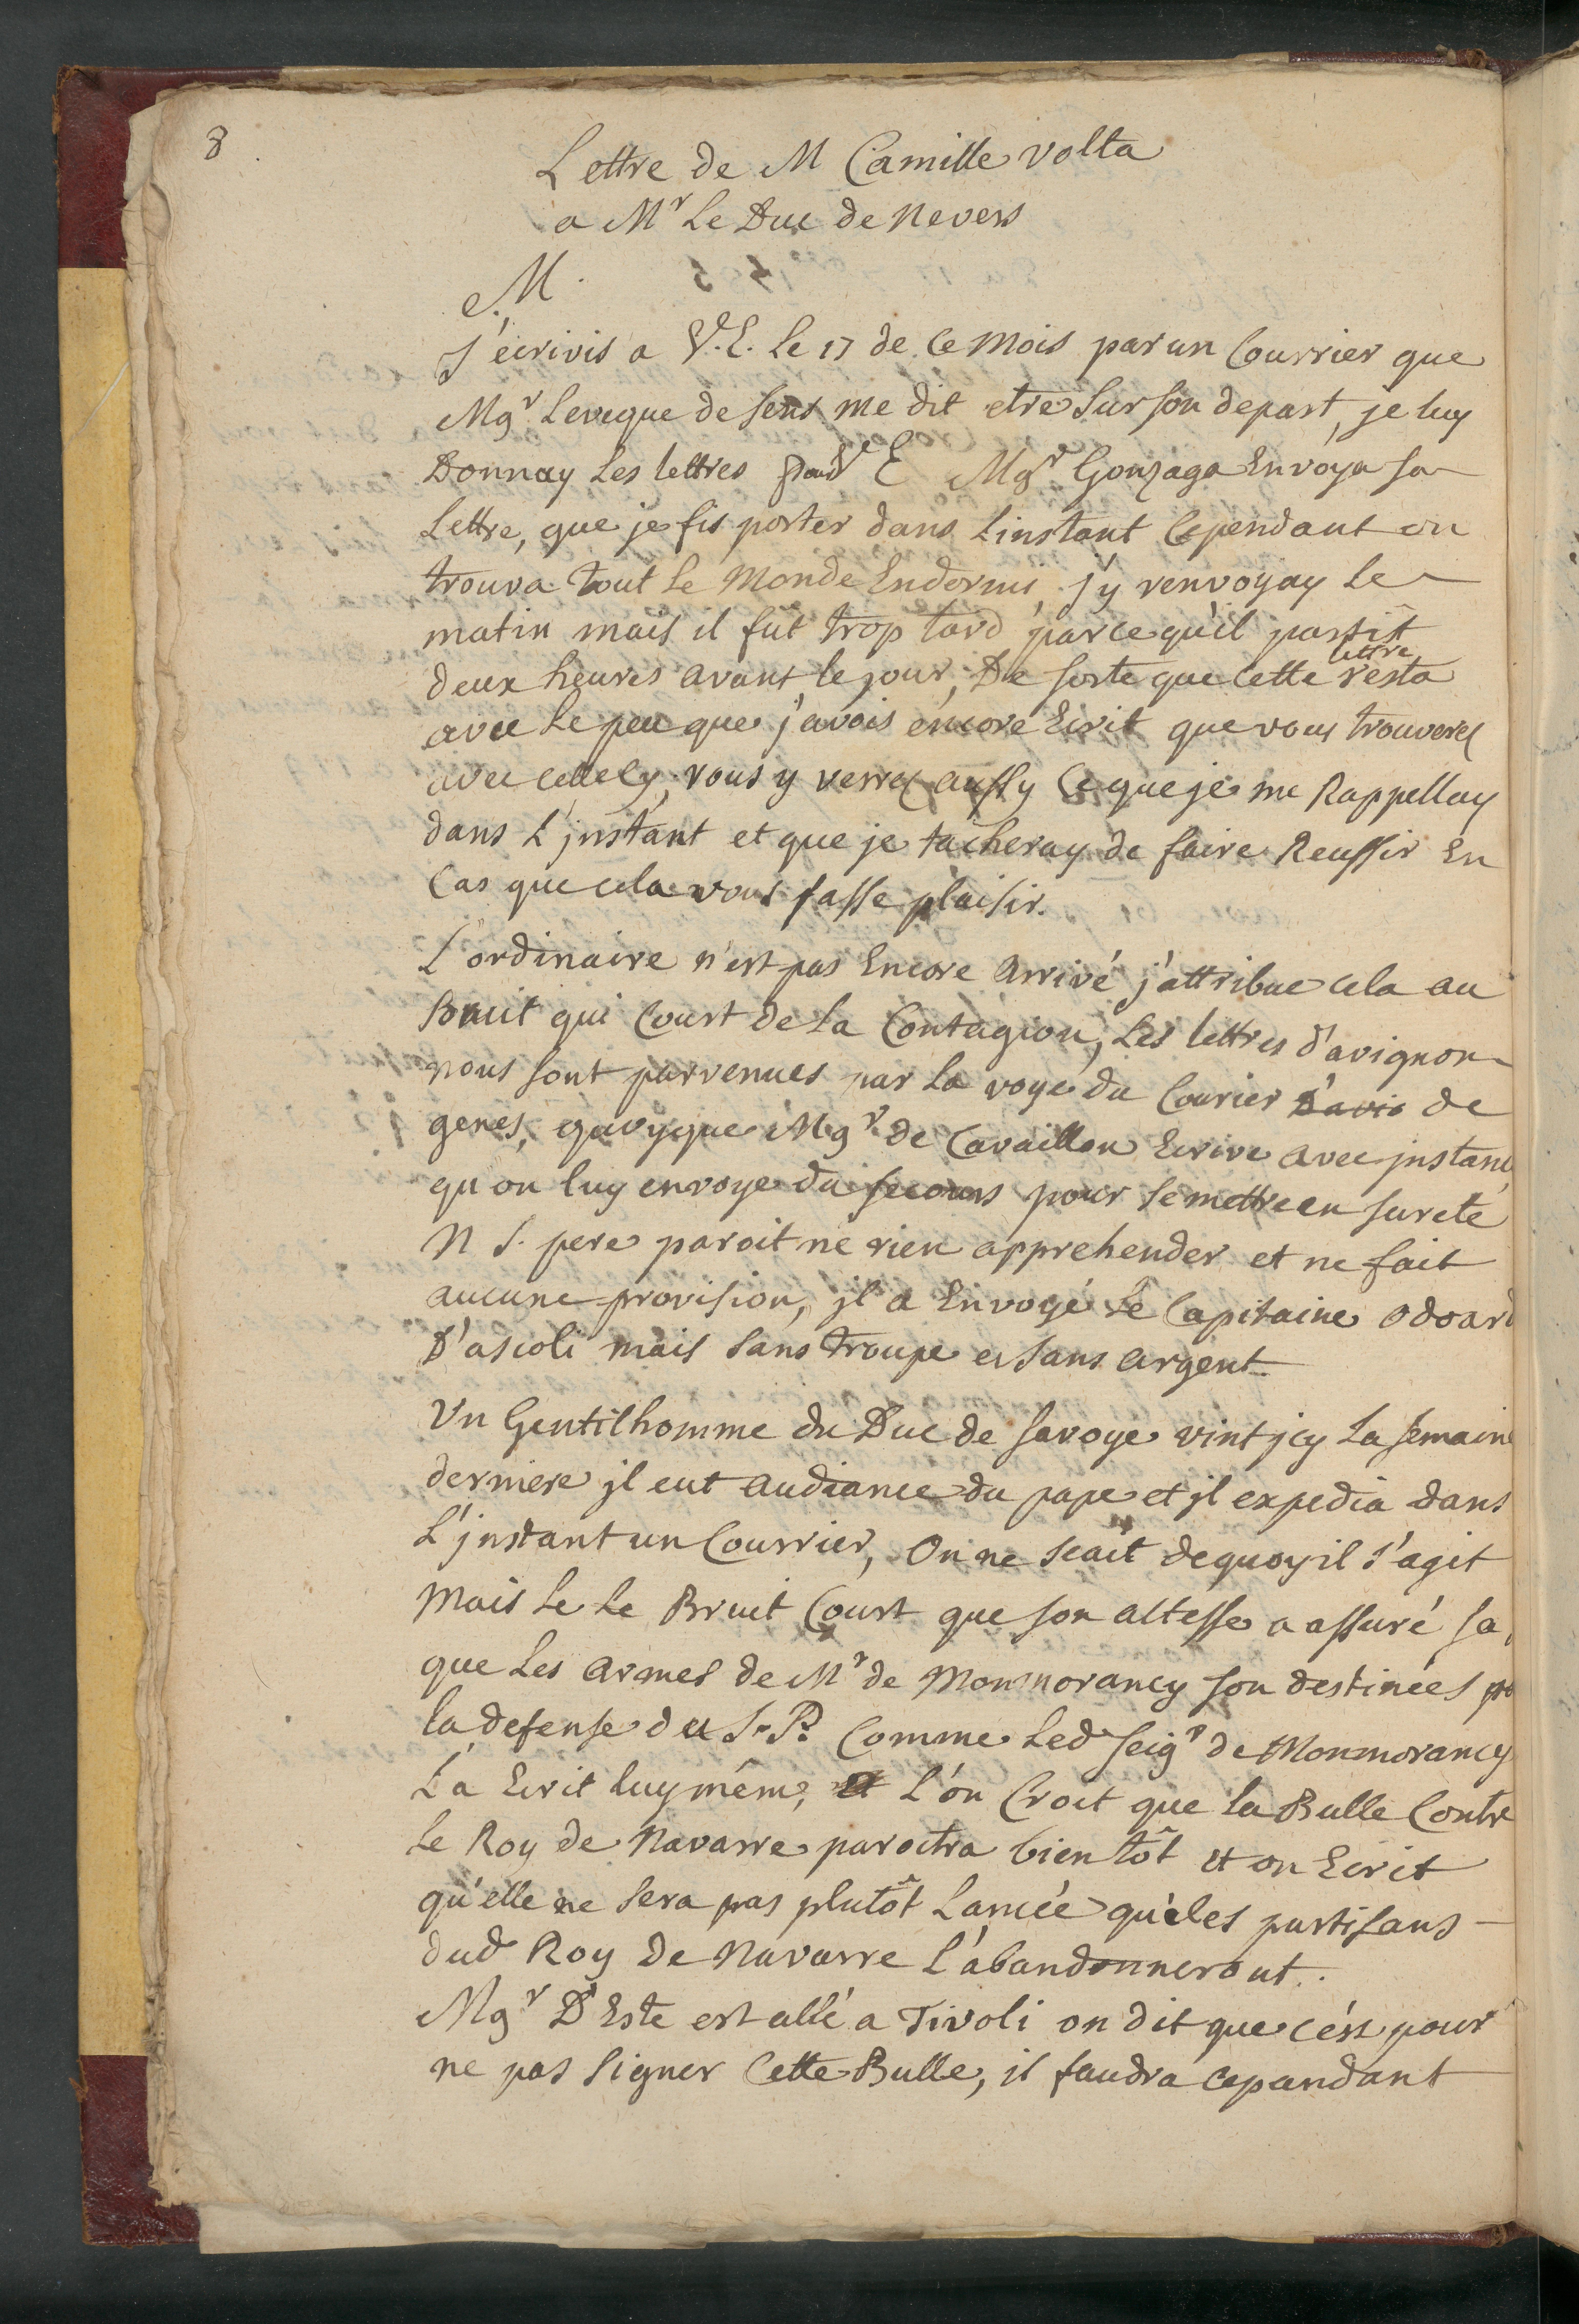 8
Lettre de M Camille volta
a Mr Le Duc de Nevers
M.
J'écrivis a V.e E. Le 17 de Ce Mois par un Courrier que
Mgr Leveque de Sens me dit etre Sur son depart, je luy
Donnay Les lettres pour Ve E Mgr Gonzaga Envoya sa
Lettre, que je fis porter dans Linstant Cependant on
trouva Tout Le Monde Endormi, j'y renvoyay Le
matin mais il fut trop tard parcequ'il partit
deux heures avant le jour, De sorte que Cette lettre resta
avec Le peu que j'avois encore Ecrit que vous trouverez
avec cellecy, vous y verrez aussy Ce que je me Rappellay
dans L'jnstant et que je tacheray de faire Reussir En
Cas que cela vous fasse plaisir.
L'ordinaire n'est pas Encore Arrivé j'attribue cela au
Bruit qui Court de La Contagion, Les lettres d'avignon
nous sont parvenues par La voye du Courier D'avis de
genes, quoyque Mgr de Cavaillon Ecrive avec jnstance
qu'on luy envoye du secours pour se mettre en sureté
N S. pere paroit ne rien apprehender et ne fait
aucune provision, jl a Envoyé Le Capitaine Odoard
D'ascoli mais sans troupe et sans argent
Un Gentilhomme du Duc de Savoye vint jcy La semaine
derniere jl eut audiance du pape et jl expedia dans
L'jnstant un Courrier, On ne scait dequoy il s'agit
Mais Le Le Bruit Court que son altesse a assuré sa
que Les armes de Mr de Monmorancy son destinées po
la defense du S. P. Comme Led Seigr de Monmorancy
L'a Ecrit luy mêm, et L'on Croit que la Bulle Contre
Le Roy de Navarre paroitra bientôt et on Ecrit
qu'elle ne Sera pas plutôt Lancée qu'eles partisans
dud Roy De Navarre L'abandonneront.
Mgr D'Este est allé a Tivoli on dit que c'est pour
ne pas Signer Cette Bulle, il faudra cepandant